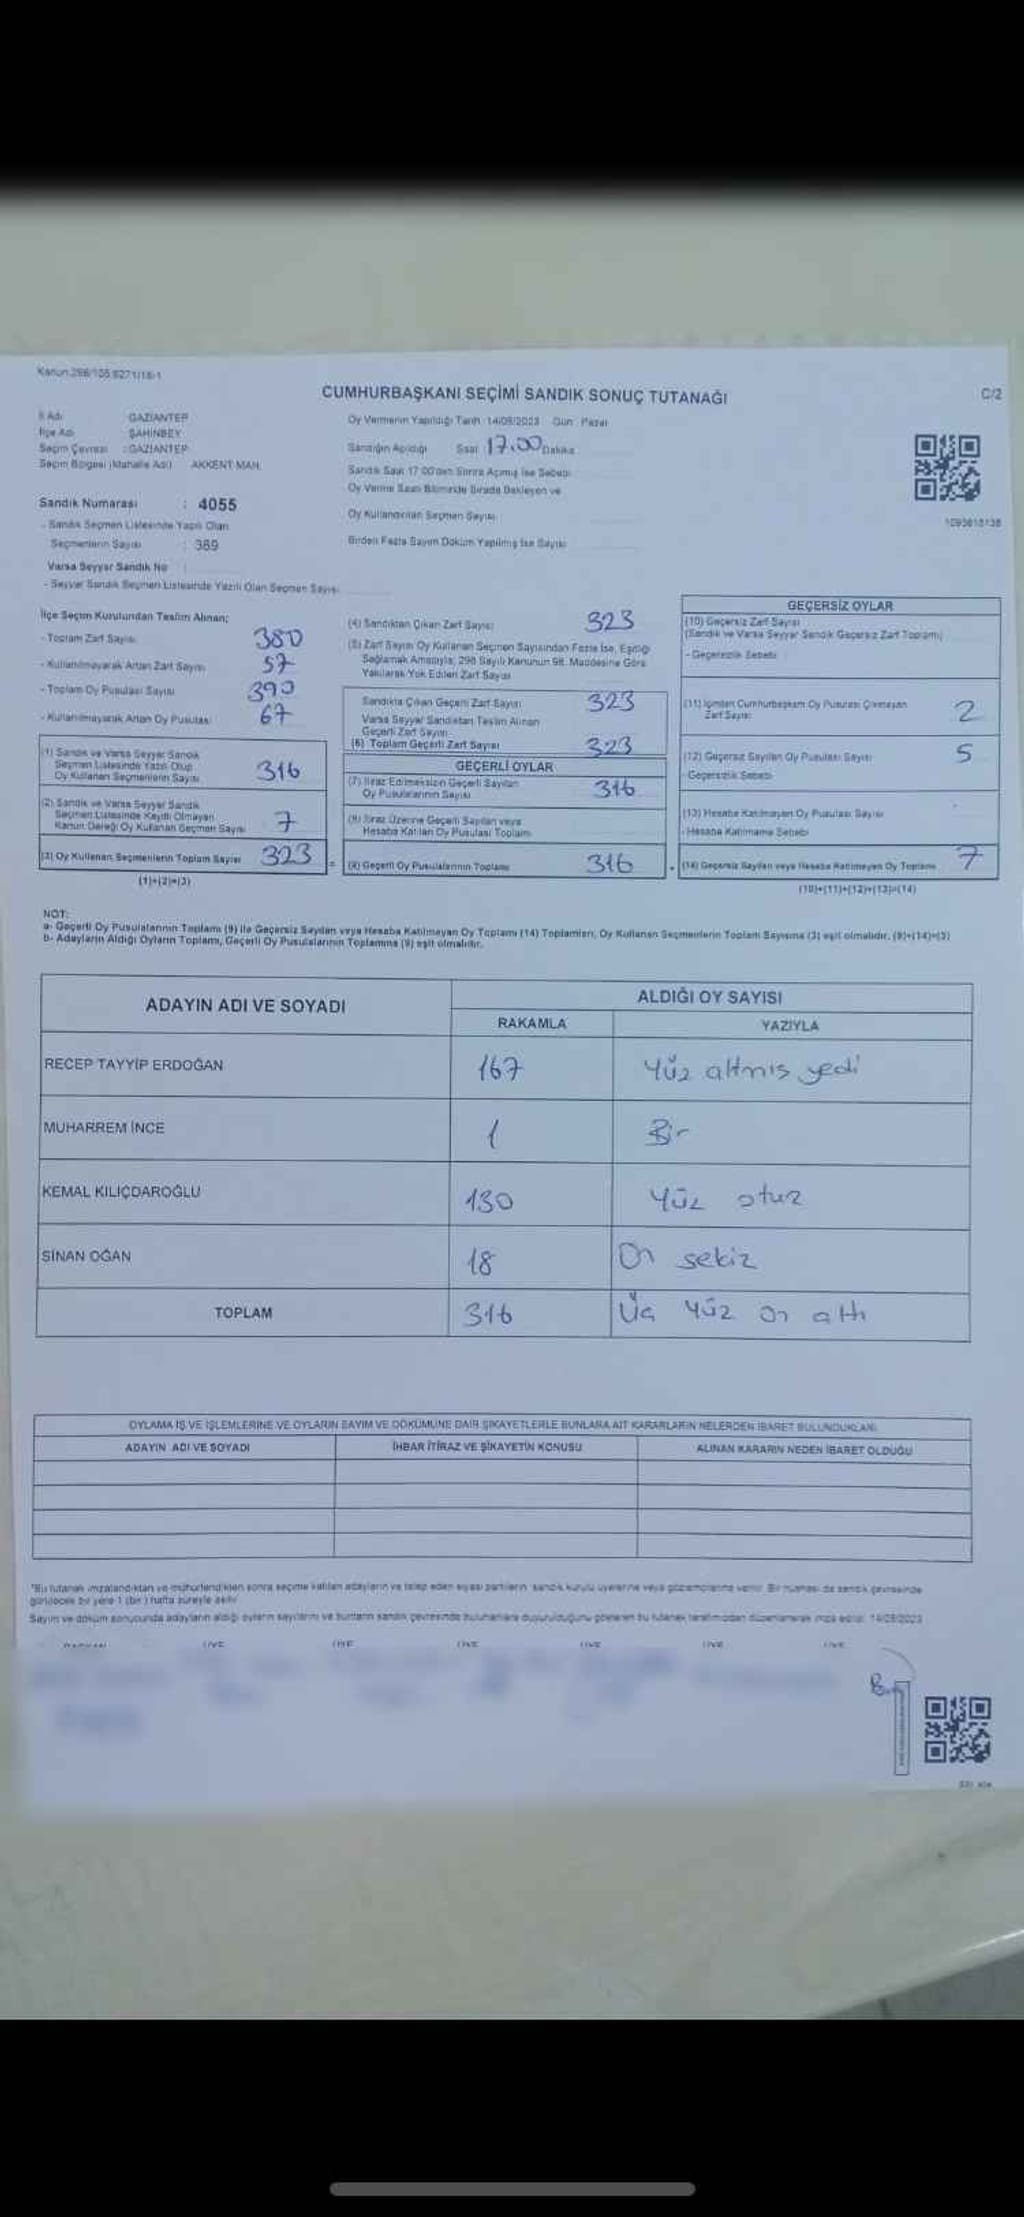 Kanun:298/105 6271/18/1
CUMHURBAŞKANI SEÇİMİ SANDIK SONUÇ TUTANAĞI
C/2
İl Adı GAZİANTEP
İlçe Adı ŞAHİNBEY
Seçim Çevresi : GAZİANTEP
Seçim Bölgesi (Mahalle Adı) AKKENT MAH.
Oy Vermenin Yapıldığı Tarih 14/05/2023 Gün Pazar
Sandığın Açıldığı Saat 17.00 Dakika
Sandık Saat 17.00'den Sonra Açılmış İse Sebebi
Oy Verme Saati Bitiminde Sırada Bekleyen ve
Oy Kullandırılan Seçmen Sayısı
Birden Fazla Sayım Döküm Yapılmış İse Sayısı
1093618138
Sandık Numarası : 4055
- Sandık Seçmen Listesinde Yazılı Olan
Seçmenlerin Sayısı : 369
Varsa Seyyar Sandık No :
- Seyyar Sandık Seçmen Listesinde Yazılı Olan Seçmen Sayısı
İlçe Seçim Kurulundan Teslim Alınan;
- Toplam Zarf Sayısı 380
- Kullanılmayarak Artan Zarf Sayısı 57
- Toplam Oy Pusulası Sayısı 390
- Kullanılmayarak Artan Oy Pusulası 67
(1) Sandık ve Varsa Seyyar Sandık
Seçmen Listesinde Yazılı Olup
Oy Kullanan Seçmenlerin Sayısı 316
(2) Sandık ve Varsa Seyyar Sandık
Seçmen Listesinde Kayıtlı Olmayan
Kanun Gereği Oy Kullanan Seçmen Sayısı 7
(3) Oy Kullanan Seçmenlerin Toplam Sayısı 323
(1)+(2)=(3)
(4) Sandıktan Çıkan Zarf Sayısı 323
(5) Zarf Sayısı Oy Kullanan Seçmen Sayısından Fazla İse, Eşitliği
Sağlamak Amacıyla, 298 Sayılı Kanunun 98. Maddesine Göre
Yakılarak Yok Edilen Zarf Sayısı
Sandıkta Çıkan Geçerli Zarf Sayısı 323
Varsa Seyyar Sandıktan Teslim Alınan
Geçerli Zarf Sayısı
(6) Toplam Geçerli Zarf Sayısı 323
GEÇERLİ OYLAR
(7) İtiraz Edilmeksizin Geçerli Sayılan
Oy Pusulalarının Sayısı 316
(8) İtiraz Üzerine Geçerli Sayılan veya
Hesaba Katılan Oy Pusulası Toplamı
(9) Geçerli Oy Pusulalarının Toplamı 316
GEÇERSİZ OYLAR
(10) Geçersiz Zarf Sayısı
(Sandık ve Varsa Seyyar Sandık Geçersiz Zarf Toplamı)
- Geçersizlik Sebebi
(11) İçinden Cumhurbaşkanı Oy Pusulası Çıkmayan
Zarf Sayısı 2
(12) Geçersiz Sayılan Oy Pusulası Sayısı 5
- Geçersizlik Sebebi
(13) Hesaba Katılmayan Oy Pusulası Sayısı
- Hesaba Katılmama Sebebi
(14) Geçersiz Sayılan veya Hesaba Katılmayan Oy Toplamı 7
(10)+(11)+(12)+(13)=(14)
NOT:
a- Geçerli Oy Pusulalarının Toplamı (9) ile Geçersiz Sayılan veya Hesaba Katılmayan Oy Toplamı (14) Toplamları, Oy Kullanan Seçmenlerin Toplam Sayısına (3) eşit olmalıdır. (9)+(14)=(3)
b- Adayların Aldığı Oyların Toplamı, Geçerli Oy Pusulalarının Toplamına (9) eşit olmalıdır.
ADAYIN ADI VE SOYADI
ALDIĞI OY SAYISI
RAKAMLA YAZIYLA
RECEP TAYYİP ERDOĞAN 167 Yüz altmış yedi
MUHARREM İNCE 1 Bir
KEMAL KILIÇDAROĞLU 130 Yüz otuz
SİNAN OĞAN 18 On sekiz
TOPLAM 316 Üç yüz on altı
OYLAMA İŞ VE İŞLEMLERİNE VE OYLARIN SAYIM VE DÖKÜMÜNE DAİR ŞİKAYETLERLE BUNLARA AİT KARARLARIN NELERDEN İBARET BULUNDUKLARI
ADAYIN ADI VE SOYADI İHBAR İTİRAZ VE ŞİKAYETİN KONUSU ALINAN KARARIN NEDEN İBARET OLDUĞU
"Bu tutanak imzalandıktan ve mühürlendikten sonra seçime katılan adayların ve talep eden siyasi partilerin sandık kurulu üyelerine veya gözlemcilerine verilir. Bir nüshası da sandık çevresinde
görülecek bir yere 1 (bir) hafta süreyle asılır.
Sayım ve döküm sonucunda adayların aldığı oyların sayılarını ve bunların sandık çevresinde bulunanlara duyurulduğunu gösteren bu tutanak tarafımızdan düzenlenerek imza edildi. 14/05/2023
BAŞKAN ÜYE ÜYE ÜYE ÜYE ÜYE ÜYE